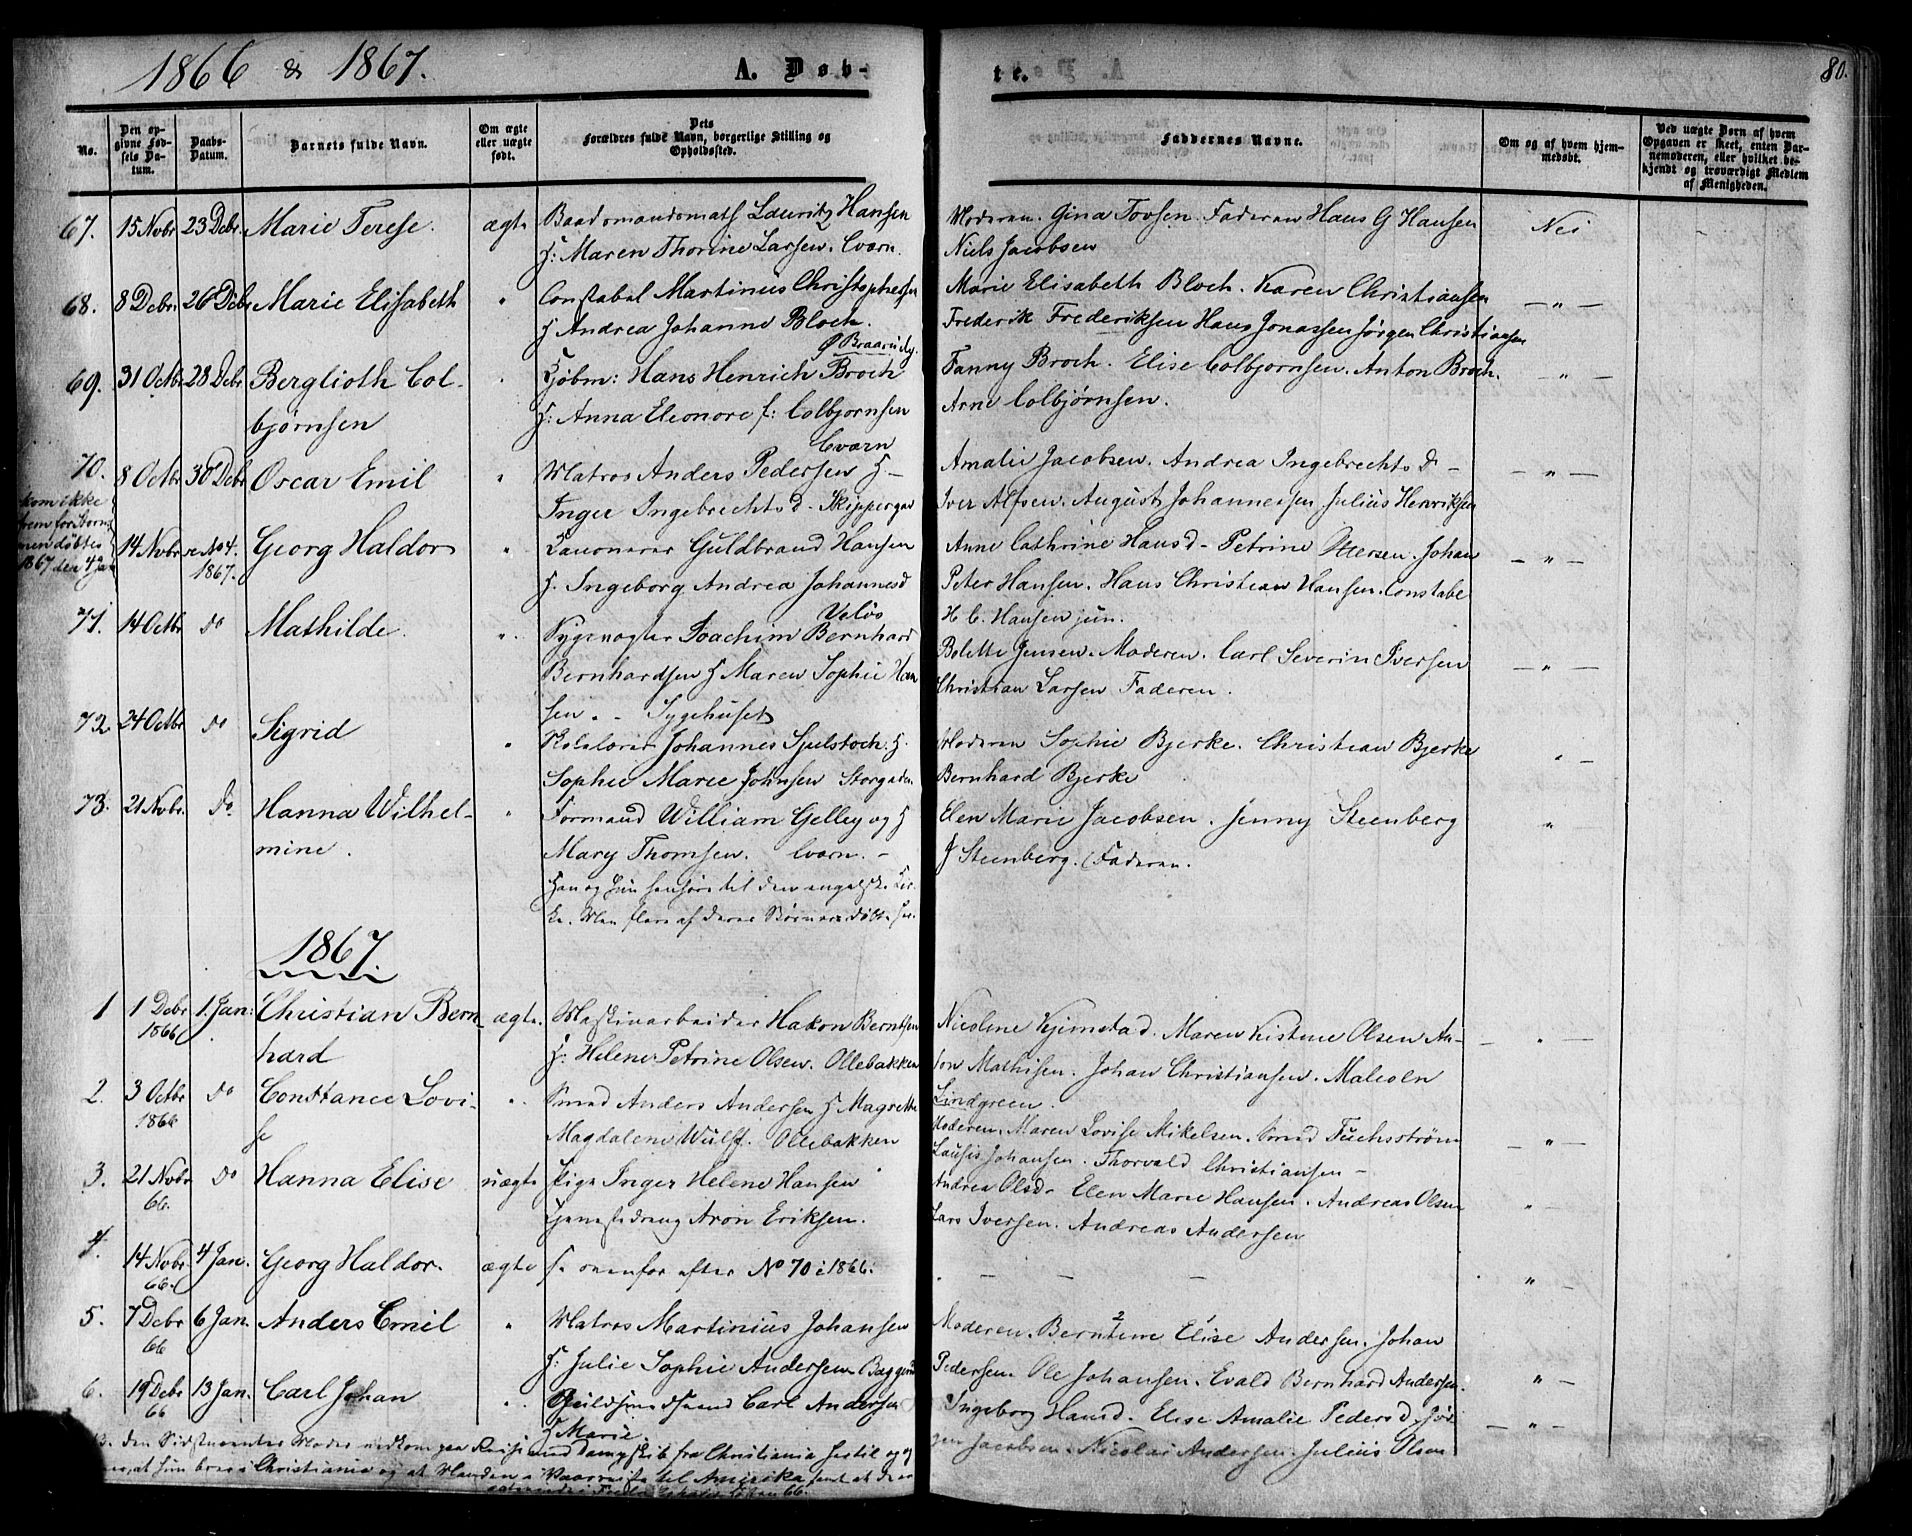 1866 & 1867.
A. Døb-
te.
80.
No.
Den op-
givne Fød-
sels Da-
tum.
Daabs-
Datum.
Barnets fulde Navn.
Om ægte
eller uægte
født.
Dets
Forældres fulde Navn, borgerlige Stilling og
Opholdssted.
Faddernes Navne.
Om og af hvem hjem-
medøbt.
Ved uægte Born af hvem
Opgaven er skeet, enten Bar-
nemoderen, eller hvilket be-
kjendt og troværdigt Medlem
af Menigheden.
67. 15 Novbr 23 Debr. Marie Terese. ægte Baadsmandsmath Lauritz Hansen
H: Maren Thorine Larsen. Hvarn.
Moderen. Gina Tovsen. Faderen Hans G Hansen Nei
Niels Jacobsen
68. 8 Debr 26 Debr Marie Elisabeth " Constabel Martinus Christophersen
H Andrea Johanne Bloch.
Marie Elisabeth Bloch. Karen Christiansen — " —
Frederik Frederiksen Hans Jonassen Jörgen Christiansen
Ø Braarudg.
69. 31 Octbr 28 Debr Berglioth Col- " Kjøbm: Hans Henrich Broch
bjørnsen H: Anna Eleonore f: Colbjørnsen
Fanny Broch. Elise Colbjørnsen. Anton Broch. — " —
Arne Colbjørnsen.
Hvarn
70. 8 Octbr 30 Debr Oscar Emil " Matros Anders Pedersen H—
Inger Ingebrechtsd - Skippergad
Amalie Jacobsen. Andrea Ingebrechts D - — " —
Iver Alfsen. August Johannessen Julius Henriksen
kom ikke
frem for Storm
men døbtes
1867 den 4 Jan
14 Novbr se No 4.
1867. Georg Haldor " Kanonerer Guldbrand Hansen
H. Ingeborg Andrea Johannesd
Anne Cathrine Hansd - Petrine Ottersen. Johan — " —
Peter Hansen. Hans Christian Hansen. Constabe
H C. Hansen jun.
Veløs
71. 14 Octbr do Mathilde. " Sygevogter Joachim Bernhard
Bernhardsen H Maren Sophie Han
sen. - Sygehuset
Bolette Jensen. Moderen. Carl Severin Iversen — " —
Christian Larsen Faderen.
72. 24 Octbr do Sigrid " Skolelærer Johannes Spilstoch. H.
Sophie Marie Johnsen Storgaden
Moderen Sophie Bjerke. Christian Bjerke " —
Bernhard Bjerke
73. 21 Novbr. do. Hanna Wilhel- " Formand William Gelley og H
mine. Mary Thomsen. Hvarn. -
Han og Hun henhøre til den engelske Kir-
ke. Men flere af deres Børn ere døbte her.
Elen Marie Jacobsen. Jenny Steenberg " —
J Steenberg. Faderen.
1867.
1 1 Debr
1866 1. Jan: Christian Bern- ægte. Maskinarbeider Hakon Berntsen
hard H: Helene Petrine Olsen. Ollebakken
Nicoline Kjimstad. Maren Kistine Olsen An- — " —
ton Mathisen. Johan Christiansen. Malcoln
Lindgreen.
2. 3 Octbr
1866 do Constance Lovi- " Smed Anders Andersen H Magrethe
se Magdalene Wulff. Ollebakken
Moderen. Maren Lovise Mikelsen. Smed Fuchsstrøm — " —
Johansen. Thorvald Christiansen -
3. 21 Novbr
66. do Hanna Elise uægte Pige Inger Helene Hansen
Tjenestedreng Aron Eriksen.
Andrea Olsd. Elen Marie Hansen. Andreas Olsen " —
Lars Iversen. Andreas Andersen
4. 14 Novbr
66. 4 Jan. Georg Haldor. ægte se ovenfor efter No 70 i 1866. — — — "
5. 7 Debr
66 6 Jan. Anders Emil " Matros Martinius Johansen
H. Julie Sophie Andersen
Moderen. Berntine 2 Elise 1 Andersen. Johan
Pedersen. Ole Johansen. Evald Bernhard Andersen. " —
6. 19 Debr
66 13 Jan. Carl Johan " Guldsmedsvend Carl Andersen
H Marie
Ingeborg Hansd. Elise Amalie Pedersd. Jör — " —
gen Jacobsen. Nicolai Andersen. Julius Olsen
den Sidstnævntes Moder nedkom paa Reise med Dampskib fra Christiania hertil og
at hun boer i Christiania og at Manden til Amerika samt at